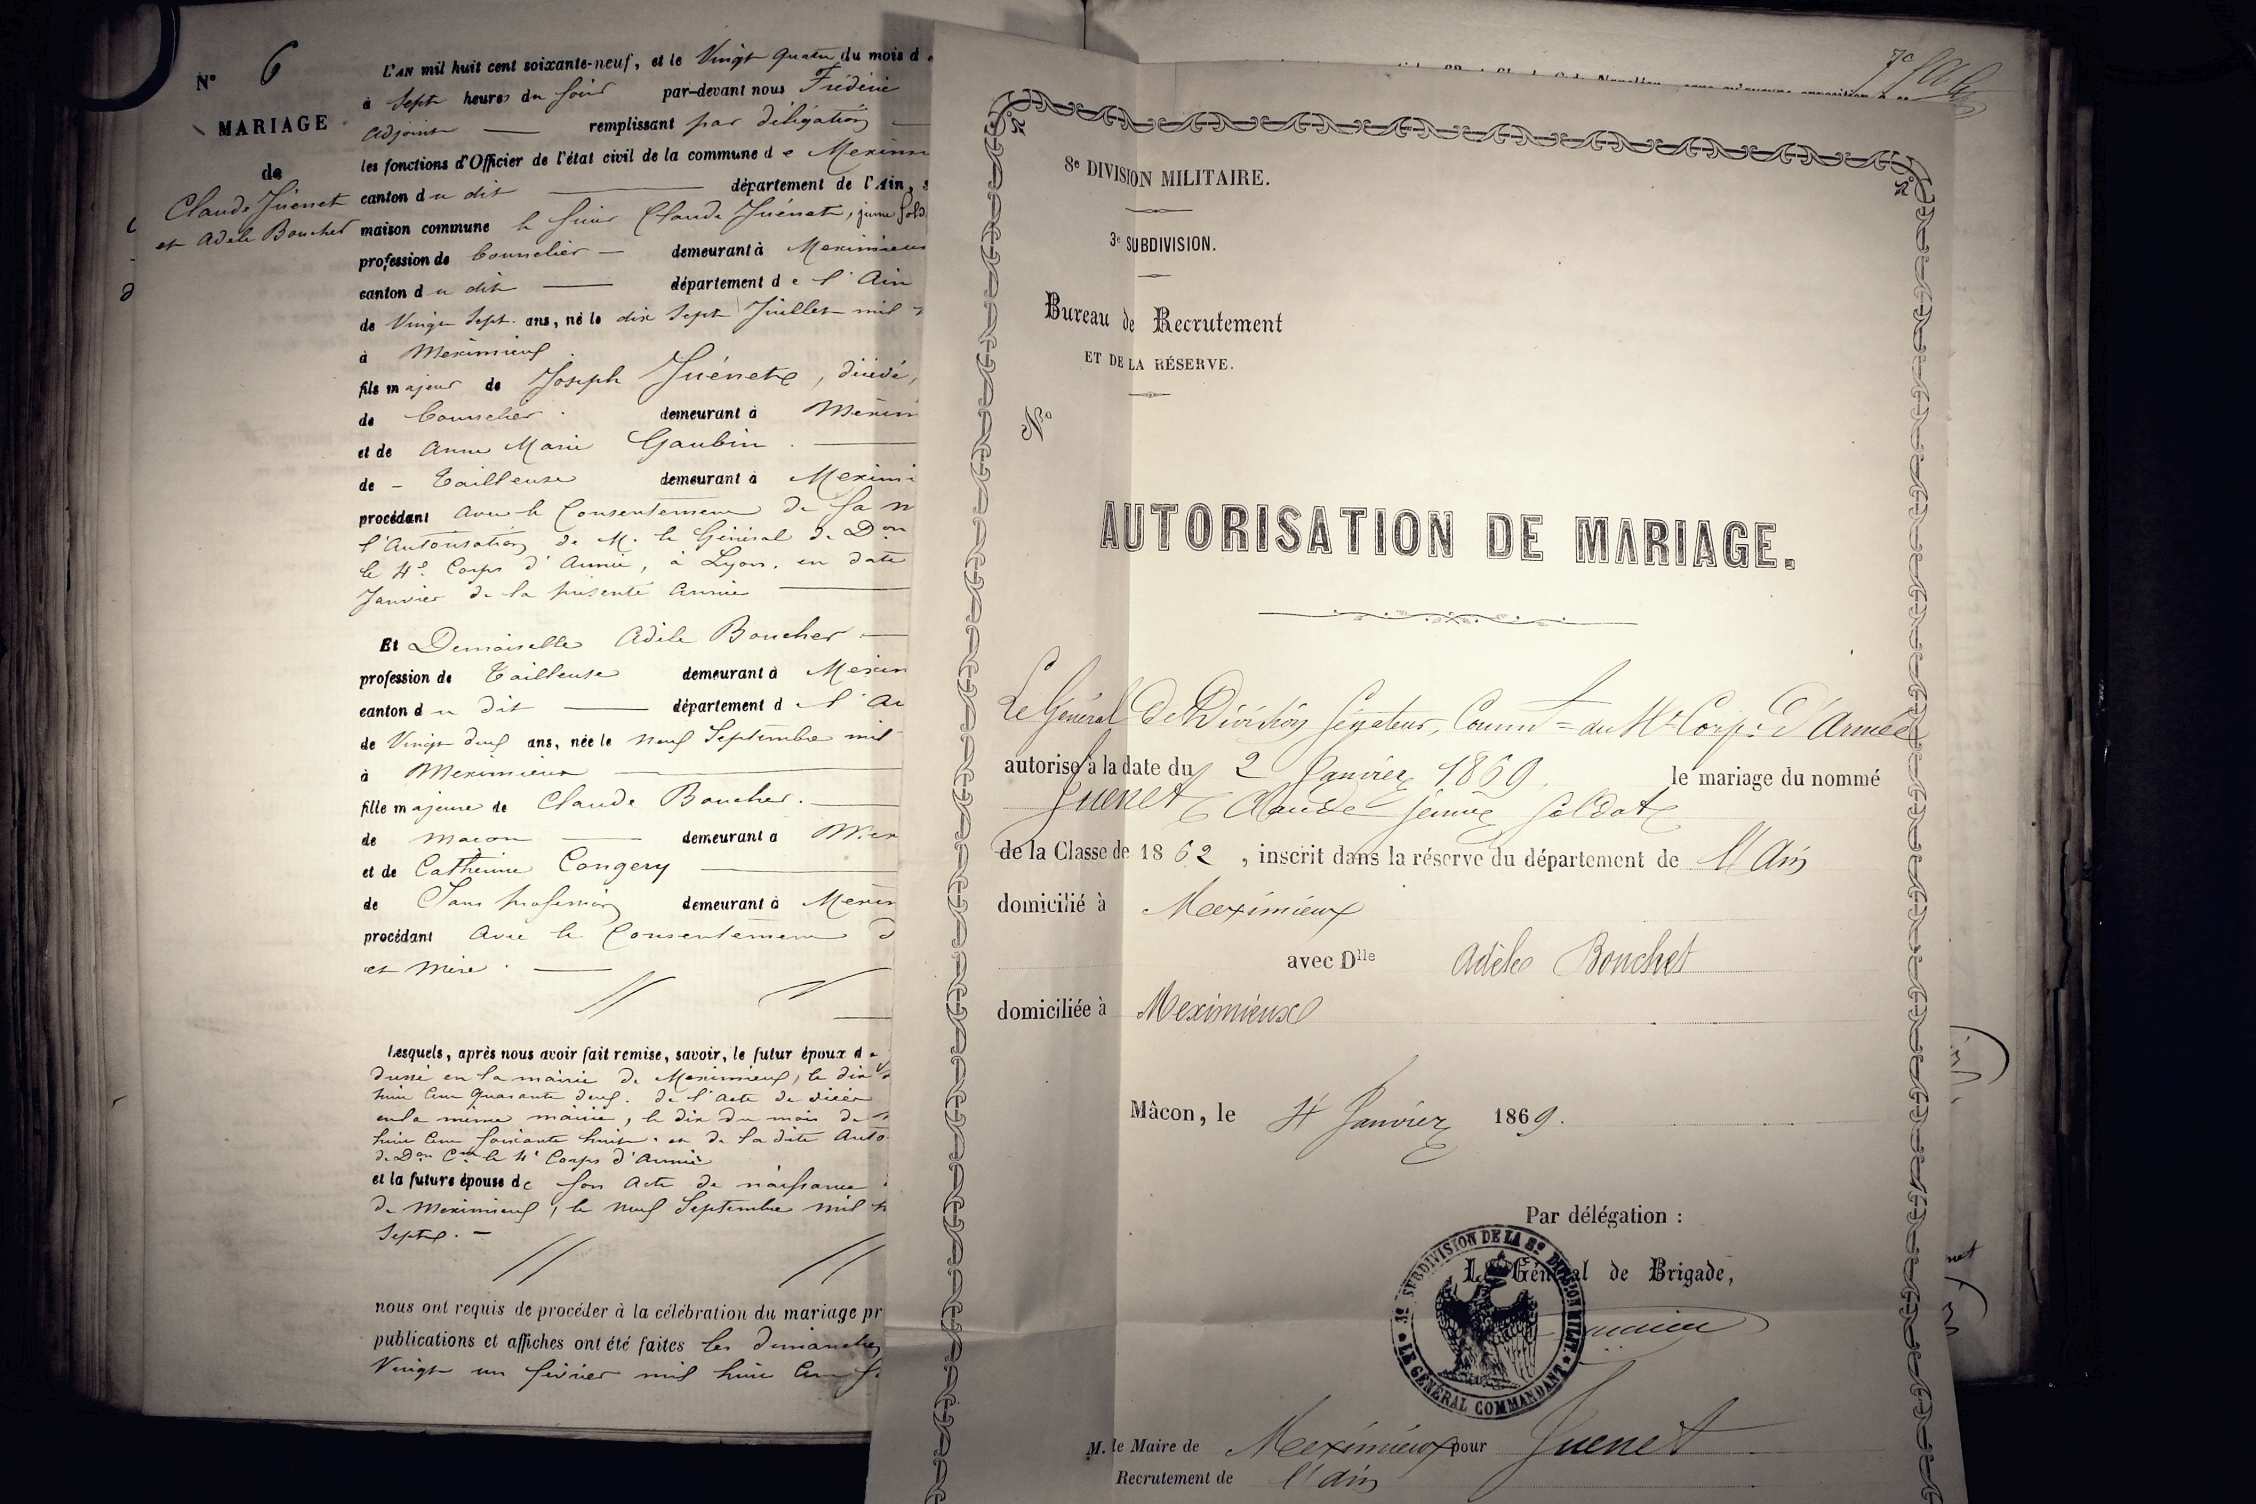 N° 6
MARIAGE
de
Claude Juénet
et Adèle Bouchet
L'AN mil huit cent soixante-neuf, et le Vingt quatre du mois d
à Sept heures du soir par-devant nous Frédéric
adjoint remplissant par délégation
les fonctions d'Officier de l'état civil de la commune de Meximi
canton du dit département de l'Ain, s
maison commune le sieur Claude Juénet, jeune Sold
profession de Courrelier demeurant à Meximieux
canton du dit département de l'Ain
de Vingt Sept ans, né le dix Sept Juillet mil
à Meximieux
fils majeur de Joseph Juénet, décédé,
de Courrelier demeurant à Mexim
et de Anne Marie Gaubin
de Tailleuse demeurant à Meximi
procédant avec le Consentement de Sa m
l'Autorisation de M. le Général de Don
le 4e Corps d'Armée, à Lyon, en date
Janvier de la présente année
Et Demoiselle Adèle Bouchet
profession de Tailleuse demeurant à Mexim
canton du dit département de l'Ai
de Vingt deux ans, née le neuf Septembre mil
à Meximieux
fille majeure de Claude Bouchet.
de maçon demeurant à Mex
et de Catherine Congery
de Sans profession demeurant à Mexim
procédant avec le Consentement d
et mère.
Lesquels, après nous avoir fait remise, savoir, le futur époux de
dressé en la mairie de Meximieux, le dix
huit cent quarante deux. de l'acte de décès
en la même mairie, le dix du mois de
huit cent soixante huit. et de la dite Auto
de Don Cant le 4e Corps d'Armée
et la future épouse de son acte de naissance
de Meximieux, le neuf Septembre mil h
Sept.
nous ont requis de procéder à la célébration du mariage pr
publications et affiches ont été faites les dimanches
Vingt un février mil huit cent s
8e DIVISION MILITAIRE.
3e SUBDIVISION.
Bureau de Recrutement
ET DE LA RÉSERVE.
N°
AUTORISATION DE MARIAGE.
Le Général de Division Sénateur, Commt du 4e Corps d'Armée
autorise à la date du 2 Janvier 1869. le mariage du nommé
Juenet Claude jeune soldat
de la Classe de 1862, inscrit dans la réserve du département de l'Ain
domicilié à Meximieux
avec Dlle Adèle Bouchet
domiciliée à Meximieux
Mâcon, le 4 Janvier 1869.
Par délégation :
Le Général de Brigade,
3e SUBDIVISION DE LA 8e DIVISION MILIT.
LE GÉNÉRAL COMMANDANT
M. le Maire de Meximieux pour Juenet
Recrutement de l'Ain